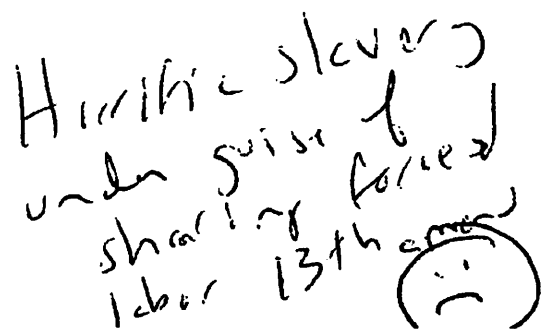 Horrific slavery
under guise of
sharing forced
labor 13th amend